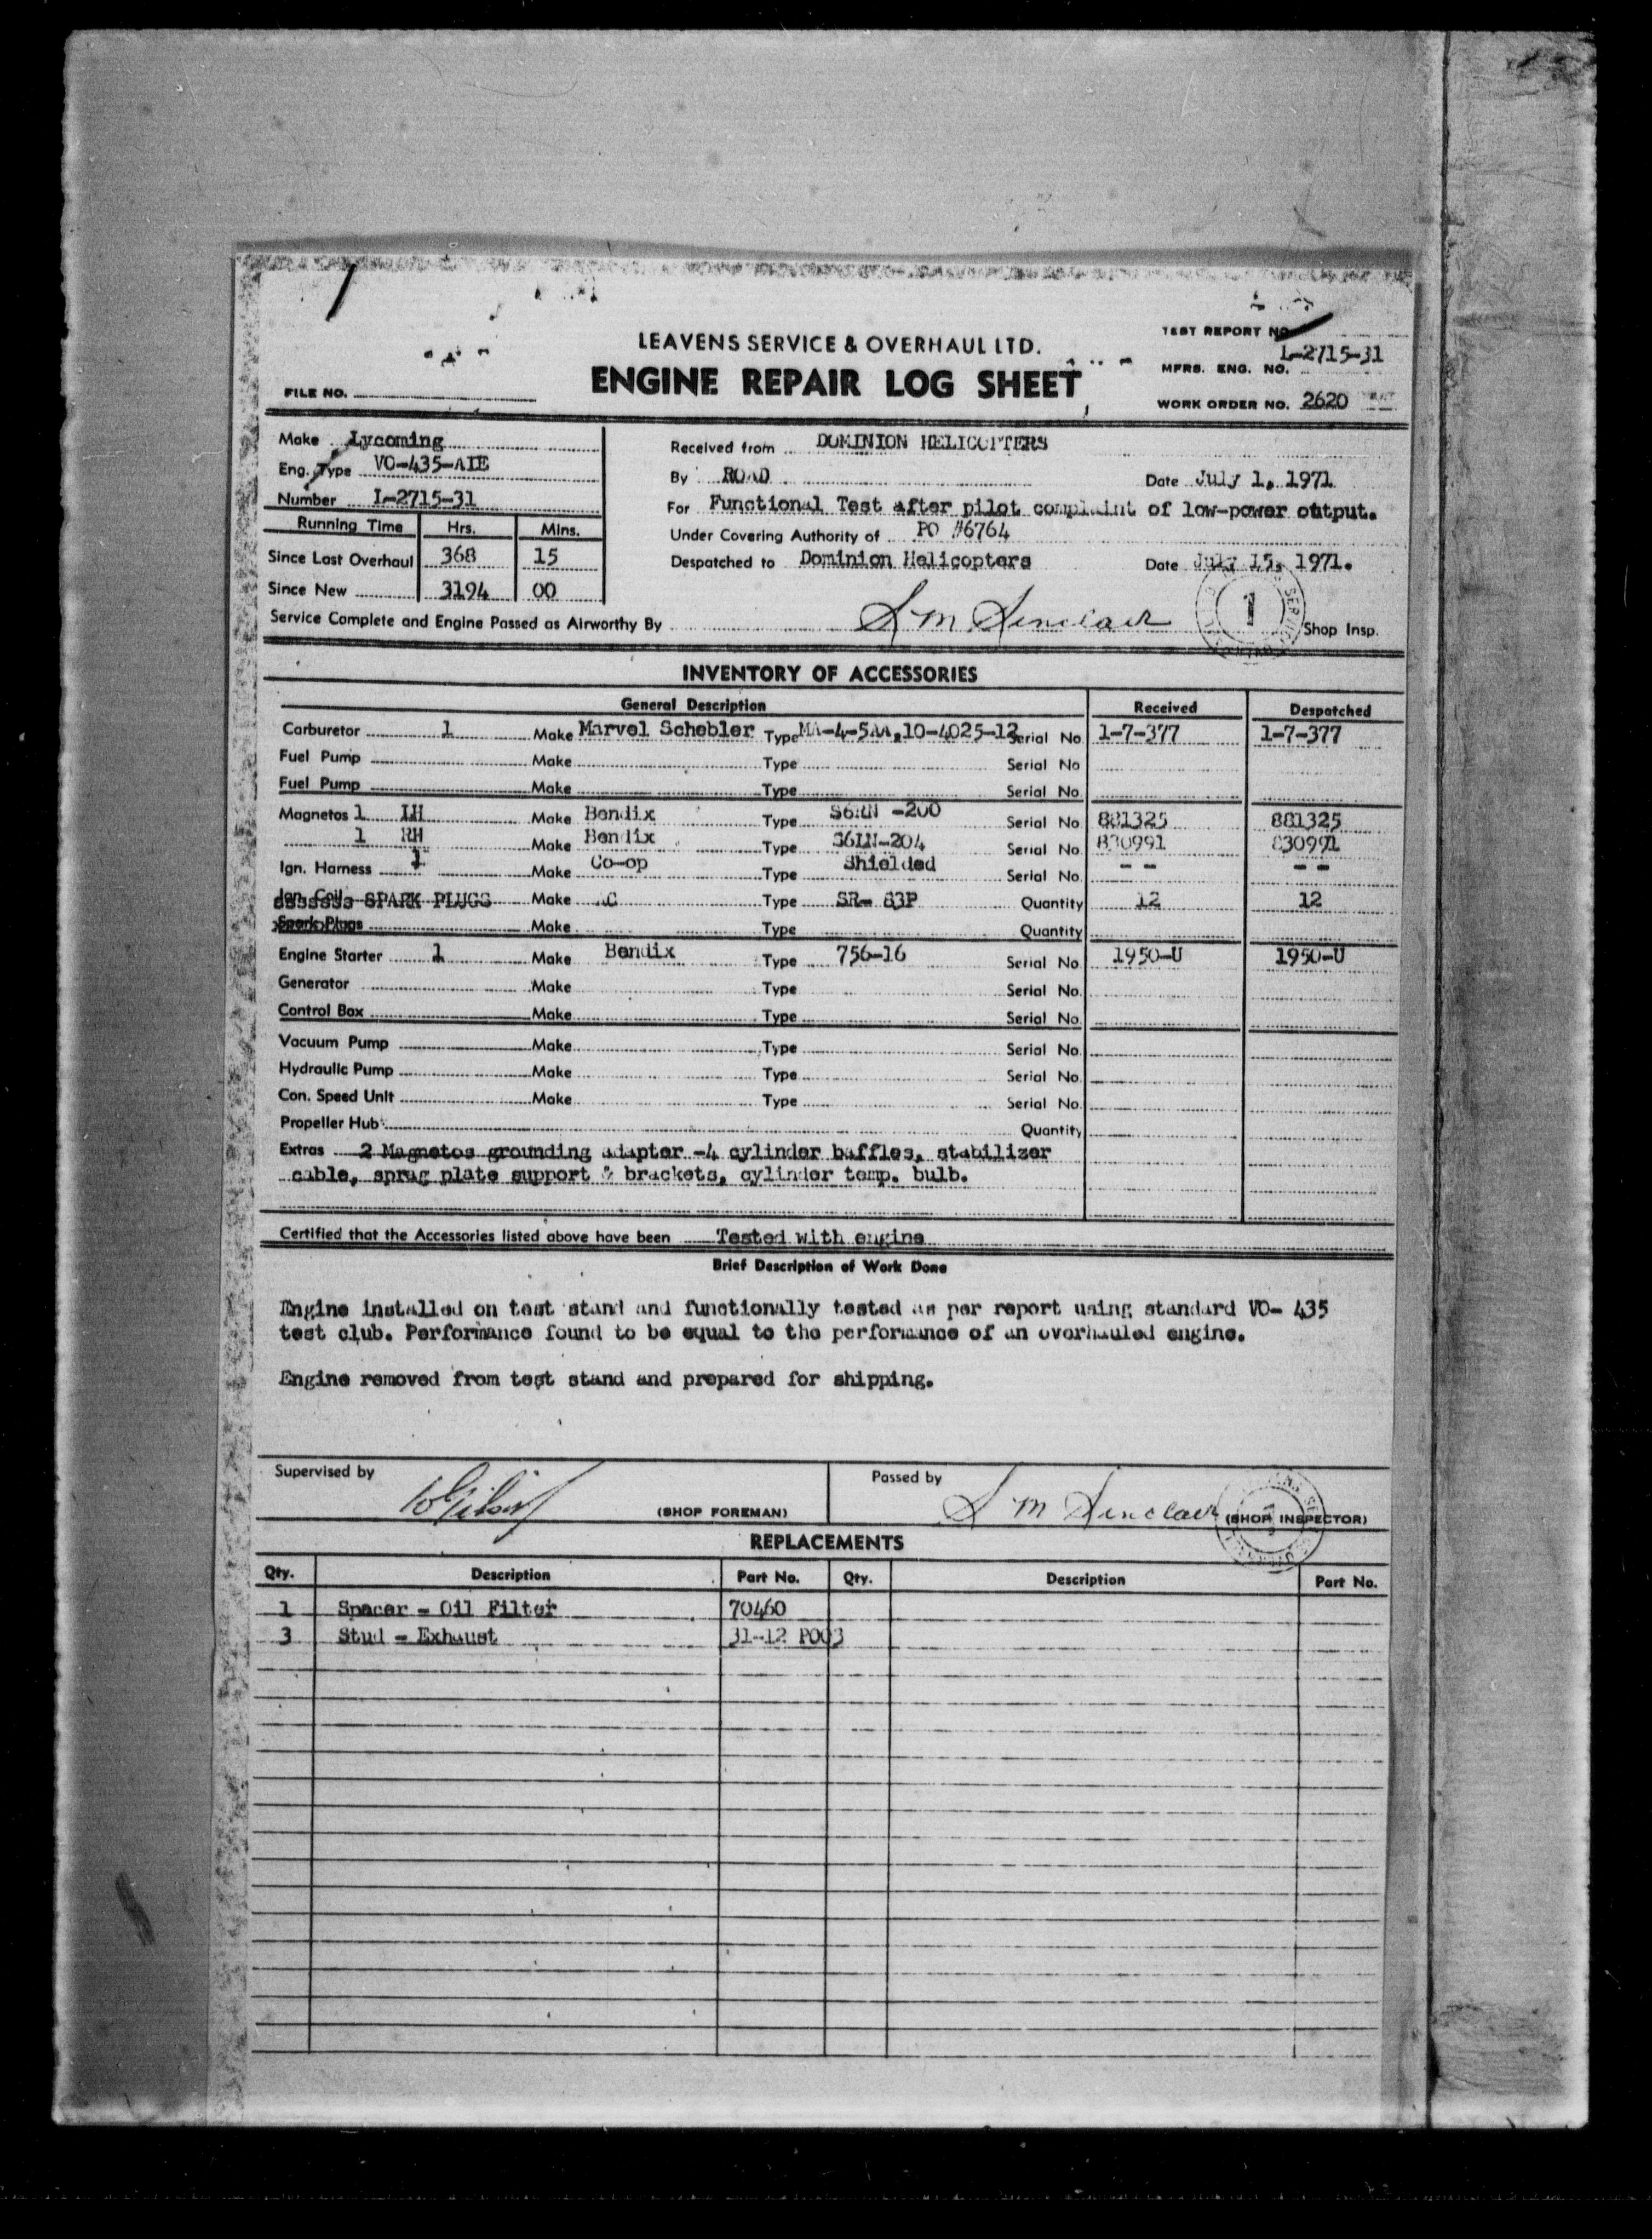 LEAVENS SERVICE & OVERHAUL LTD.
ENGINE REPAIR LOG SHEET
FILE NO.
TEST REPORT NO.
MFRS. ENG. NO. L-2715-31
WORK ORDER NO. 2620
Make Lycoming
Eng. Type VO-435-AIE
Number L-2715-31
Running Time Hrs. Mins.
Since Last Overhaul 368 15
Since New 3194 00
Received from DOMINION HELICOPTERS
By ROAD Date July 1, 1971
For Functional Test after pilot complaint of low-power output.
Under Covering Authority of PO #6764
Despatched to Dominion Helicopters Date July 15, 1971.
Service Complete and Engine Passed as Airworthy By S M Sinclair 1 Shop Insp.
INVENTORY OF ACCESSORIES
General Description Received Despatched
Carburetor 1 Make Marvel Schebler Type MA-4-5AA,10-4025-12 Serial No 1-7-377 1-7-377
Fuel Pump Make Type Serial No
Fuel Pump Make Type Serial No.
Magnetos 1 LH Make Bendix Type S6RN -200 Serial No. 881325 881325
1 RH Make Bendix Type S6LN-204 Serial No. 830991 830991
Ign. Harness 1 Make Co-op Type Shielded Serial No. -- --
Ign. Coil SPARK PLUGS Make AC Type SR- 83P Quantity 12 12
Spark Plugs Make Type Quantity
Engine Starter 1 Make Bendix Type 756-16 Serial No. 1950-U 1950-U
Generator Make Type Serial No.
Control Box Make Type Serial No.
Vacuum Pump Make Type Serial No.
Hydraulic Pump Make Type Serial No.
Con. Speed Unit Make Type Serial No.
Propeller Hub Quantity
Extras 2 Magnetos grounding adapter -4 cylinder baffles, stabilizer
cable, sprag plate support & brackets, cylinder temp. bulb.
Certified that the Accessories listed above have been Tested with engine
Brief Description of Work Done
Engine installed on test stand and functionally tested as per report using standard VO- 435
test club. Performance found to be equal to the performance of an overhauled engine.
Engine removed from test stand and prepared for shipping.
Supervised by (SHOP FOREMAN)
Passed by S M Sinclair (SHOP INSPECTOR)
REPLACEMENTS
Qty. Description Part No. Qty. Description Part No.
1 Spacer - Oil Filter 70460
3 Stud - Exhaust 31-12 P003